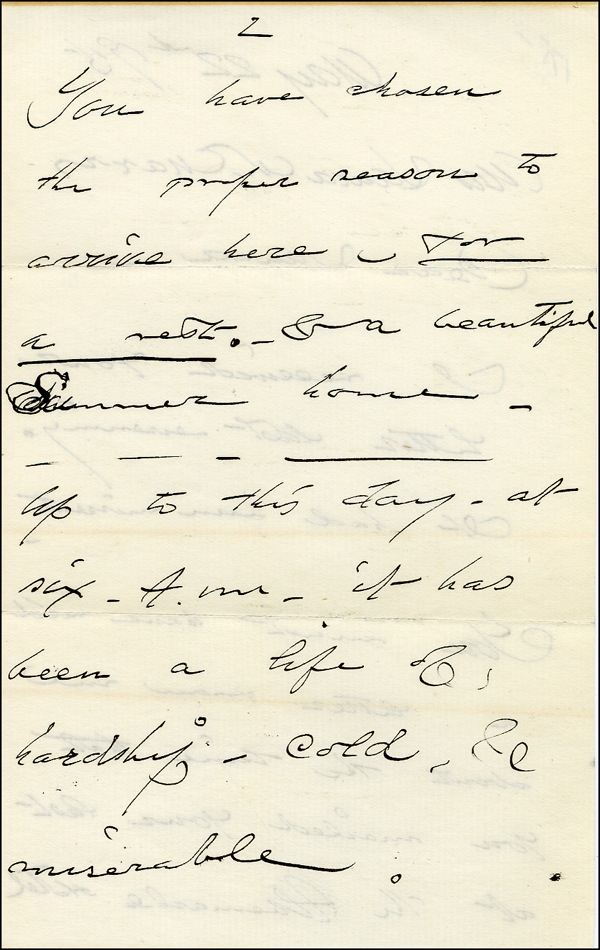 2
You have chosen
the proper season to
arrive here - for
a rest. - & a beautiful
Summer home -
Up to this day - at
six - A.m. - it has
been a life &,
hardship - cold, &c
miserable.